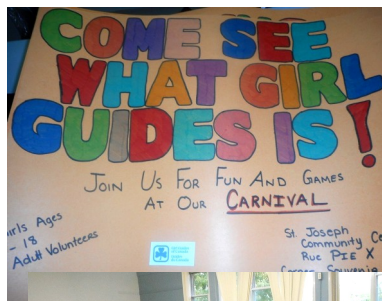 COME SEE
WHAT GIRL
GUIDES IS!
JOIN US FOR FUN AND GAMES
AT OUR CARNIVAL
irls Ages
- 18
Adult Volunteers
St. Joseph
Community Ce
Rue PIE X
Corner Souvenir